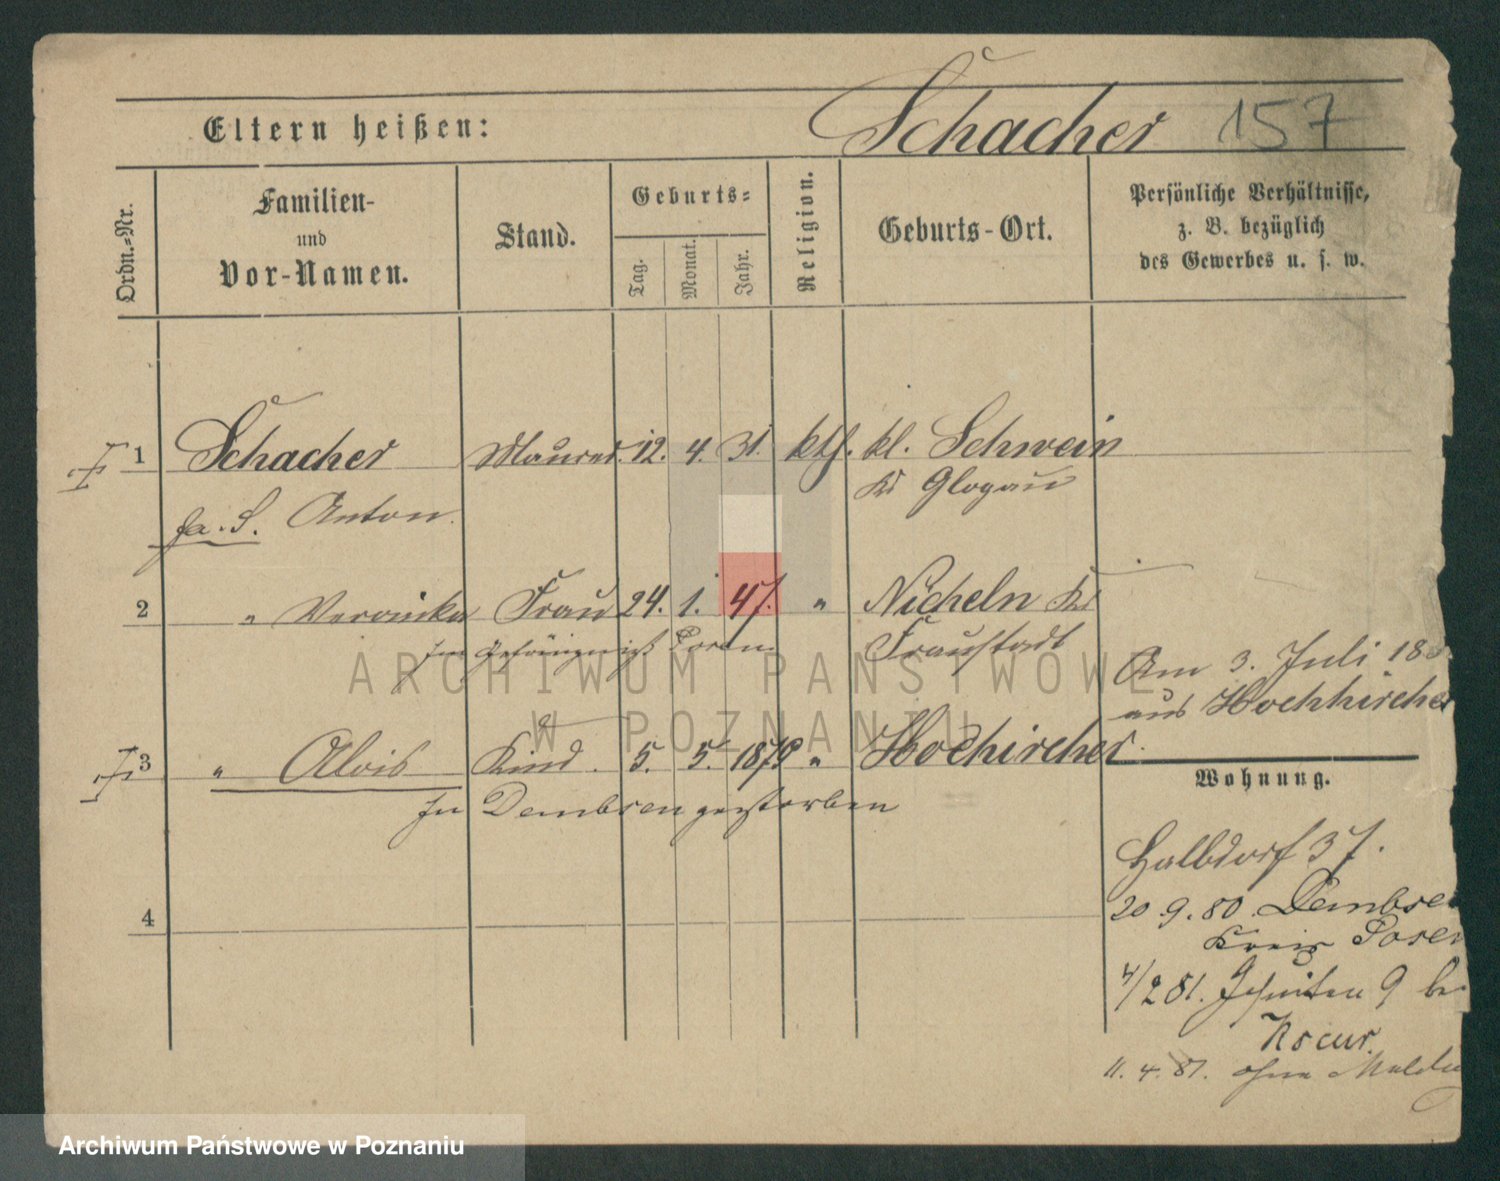 Eltern heißen: Schacher 157
Ordn.-Nr.
Familien-
und
Vor-Namen.
Stand.
Geburts-
Tag.
Monat.
Jahr.
Religion.
Geburts-Ort.
Persönliche Verhältnisse,
z. B. bezüglich
des Gewerbes u. s. w.
1 Schacher Maurer. 12. 4. 31. kth. kl. Schwein
Kr Glogau
Anton.
2 " Veronika Frau 24. 1. 47. " Nicheln Kr
Fraustadt
im Gefängniß Posen
Am 3. Juli 18
aus Hochkircher
3 " Alois Kind. 5. 5. 1879 " Hochkircher.
In Dembsen gestorben
Wohnung.
Halbdorf 37.
20.9.80. Dembsen
Kreis Posen
4/2 81. Jesuiten 9 bei
Kocur.
4
11.4.81. ohne Meldu
ARCHIWUM PAŃSTWOWE
W POZNANIU
Archiwum Państwowe w Poznaniu